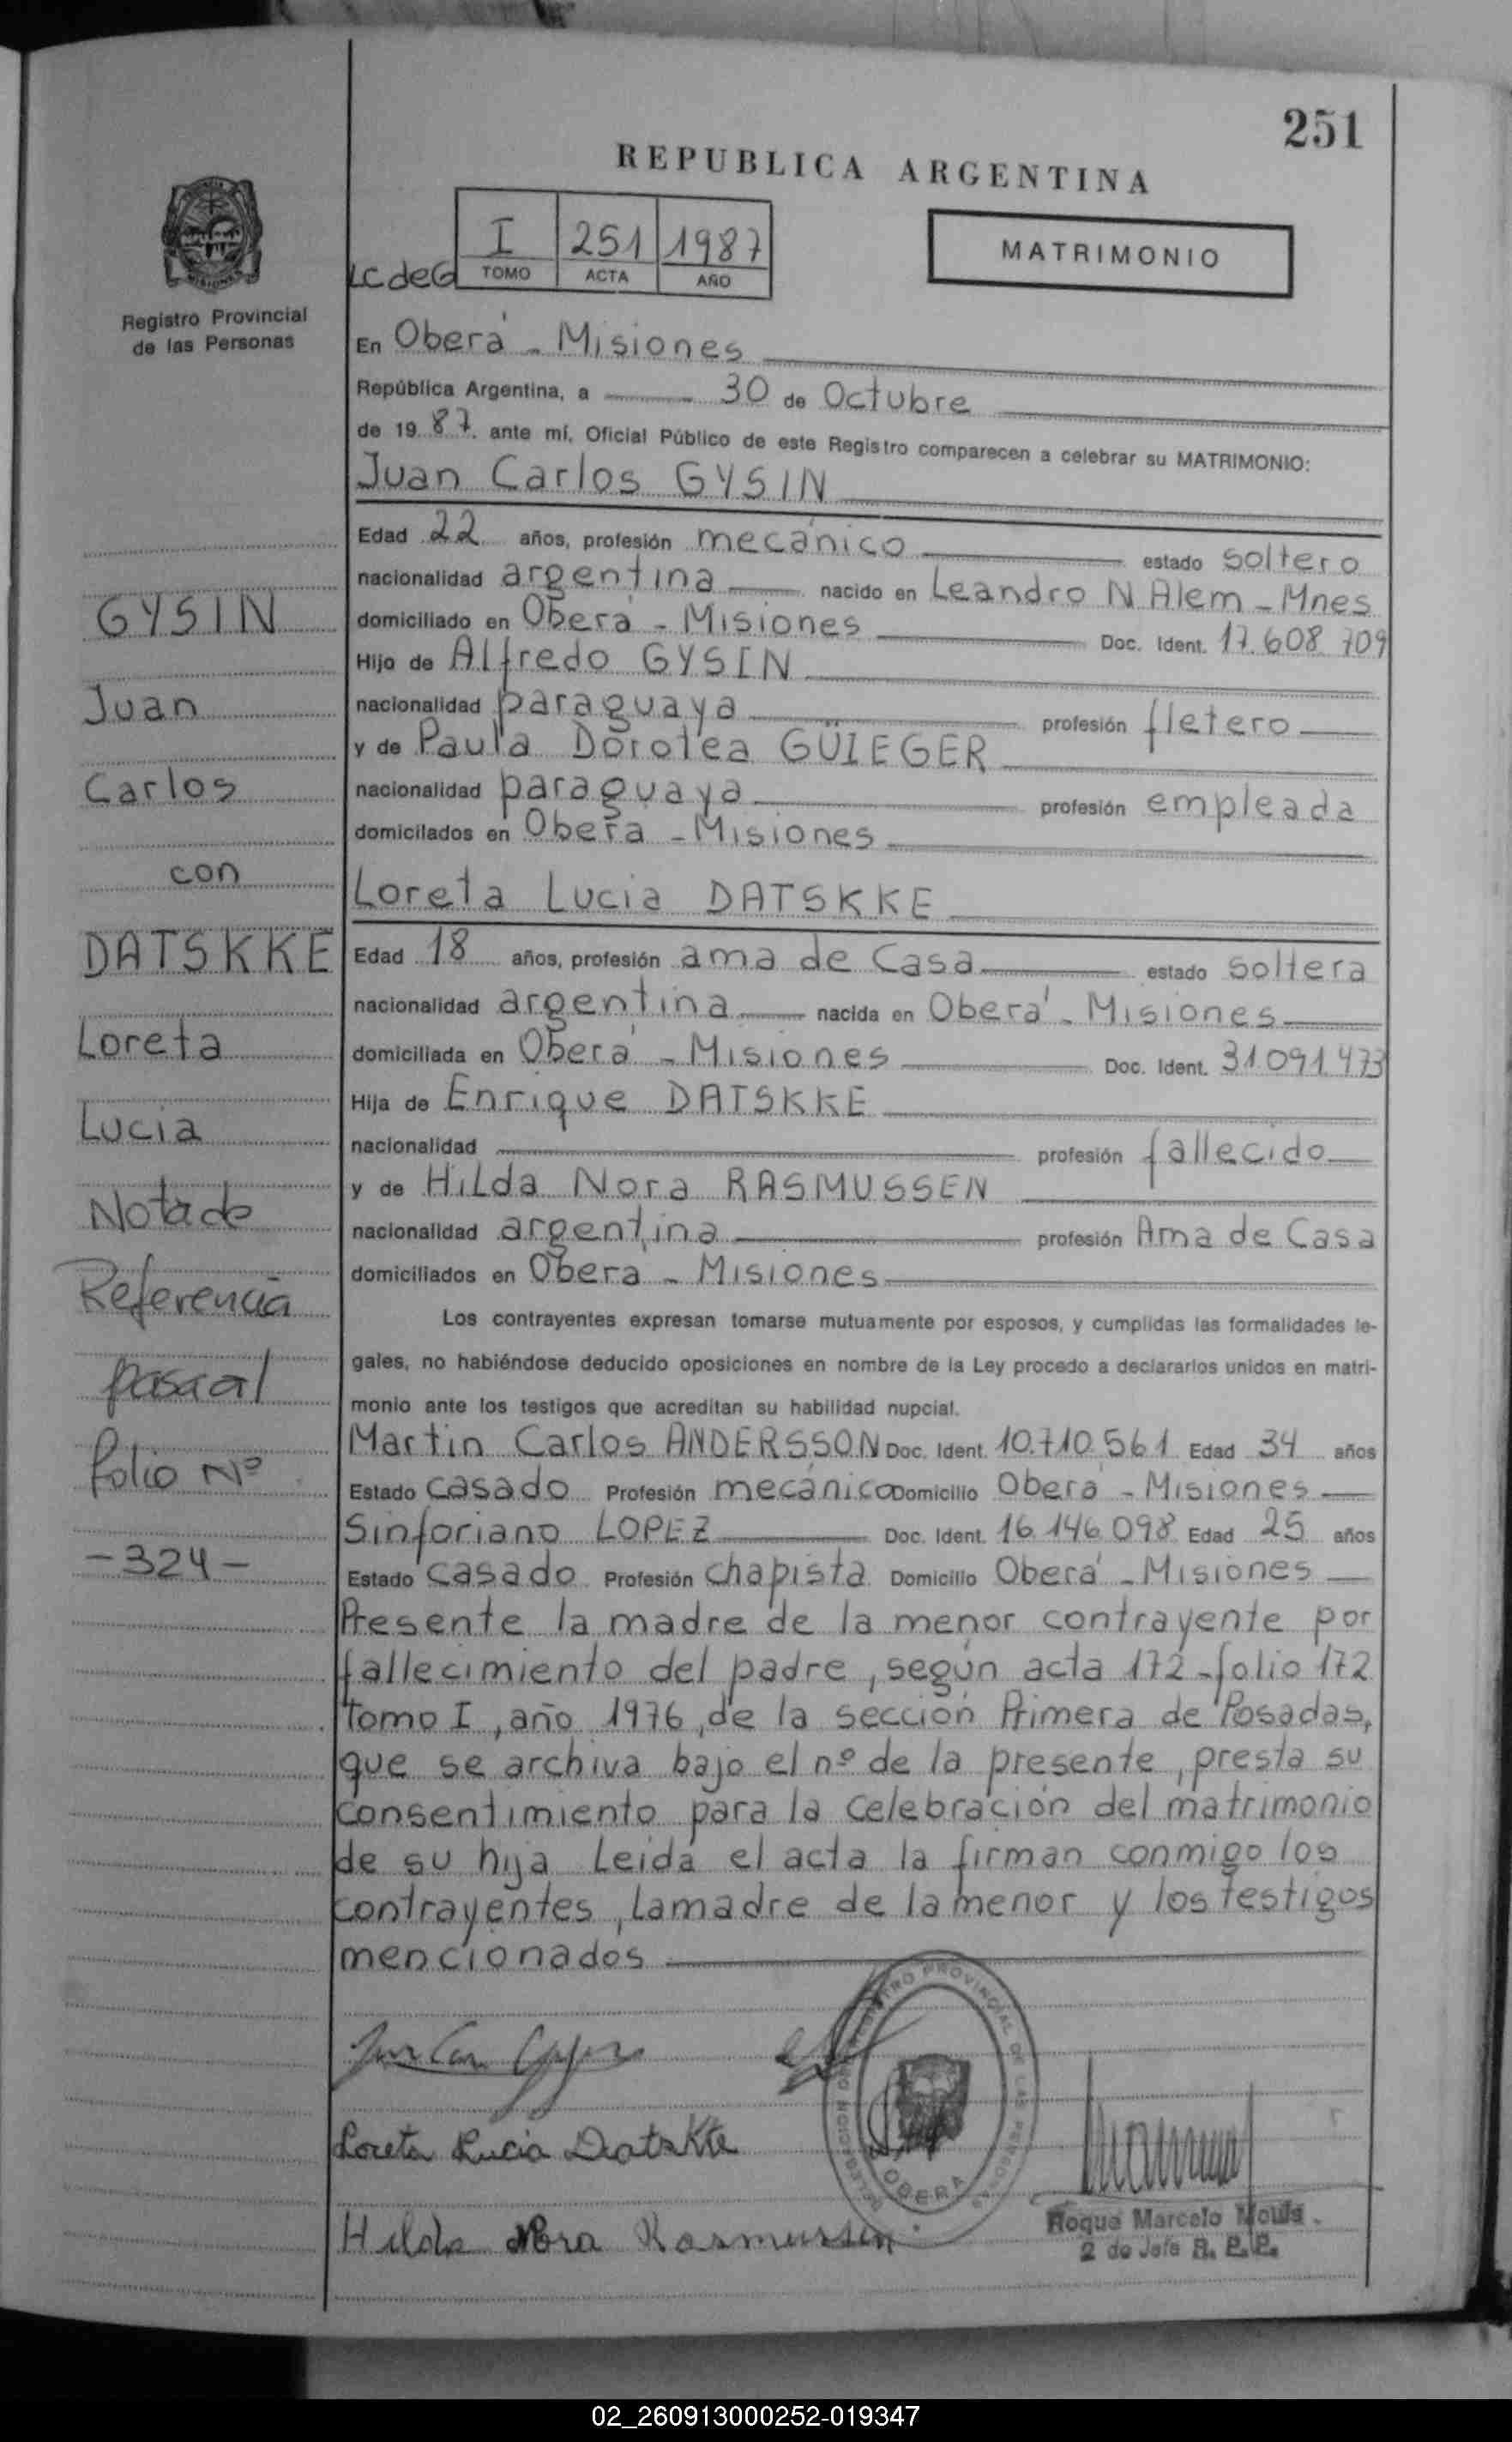 251
REPUBLICA ARGENTINA
I 251 1987
LC de G TOMO ACTA AÑO
MATRIMONIO
Registro Provincial
de las Personas
En Oberá - Misiones
República Argentina, a 30 de Octubre
de 19 87 ante mí, Oficial Público de este Registro comparecen a celebrar su MATRIMONIO:
Juan Carlos GYSIN
Edad 22 años, profesión mecánico estado soltero
nacionalidad argentina nacido en Leandro N Alem - Mnes
domiciliado en Oberá - Misiones Doc. Ident. 17.608.709
Hijo de Alfredo GYSIN
nacionalidad paraguaya profesión fletero
y de Paula Dorotea GÜIEGER
nacionalidad paraguaya profesión empleada
domicilados en Oberá - Misiones
Loreta Lucia DATSKKE
Edad 18 años, profesión ama de Casa estado soltera
nacionalidad argentina nacida en Oberá - Misiones
domiciliada en Oberá - Misiones Doc. Ident. 31.091.473
Hija de Enrique DATSKKE
nacionalidad profesión fallecido
y de Hilda Nora RASMUSSEN
nacionalidad argentina profesión Ama de Casa
domiciliados en Oberá - Misiones
Los contrayentes expresan tomarse mutuamente por esposos, y cumplidas las formalidades le-
gales, no habiéndose deducido oposiciones en nombre de la Ley procedo a declararlos unidos en matri-
monio ante los testigos que acreditan su habilidad nupcial.
Martin Carlos ANDERSSON Doc. Ident. 10.710.561 Edad 34 años
Estado casado Profesión mecánico Domicilio Oberá - Misiones
Sinforiano LOPEZ Doc. Ident. 16.146.098 Edad 25 años
Estado casado Profesión chapista Domicilio Oberá - Misiones
Presente la madre de la menor contrayente por
fallecimiento del padre, según acta 172 - folio 172
Tomo I, año 1976, de la sección Primera de Posadas,
que se archiva bajo el nº de la presente, presta su
consentimiento para la celebración del matrimonio
de su hija Leida el acta la firman conmigo los
contrayentes, la madre de la menor y los testigos
mencionados
GYSIN
Juan
Carlos
con
DATSKKE
Loreta
Lucia
Nota de
Referencia
pasa al
folio Nº
- 324 -
Loreta Lucia Datskke
Hilda Nora Rasmussen
REGISTRO PROVINCIAL DE LAS PERSONAS
OBERA
Roque Marcelo
2 do Jefe R. P. P.
02_260913000252-019347